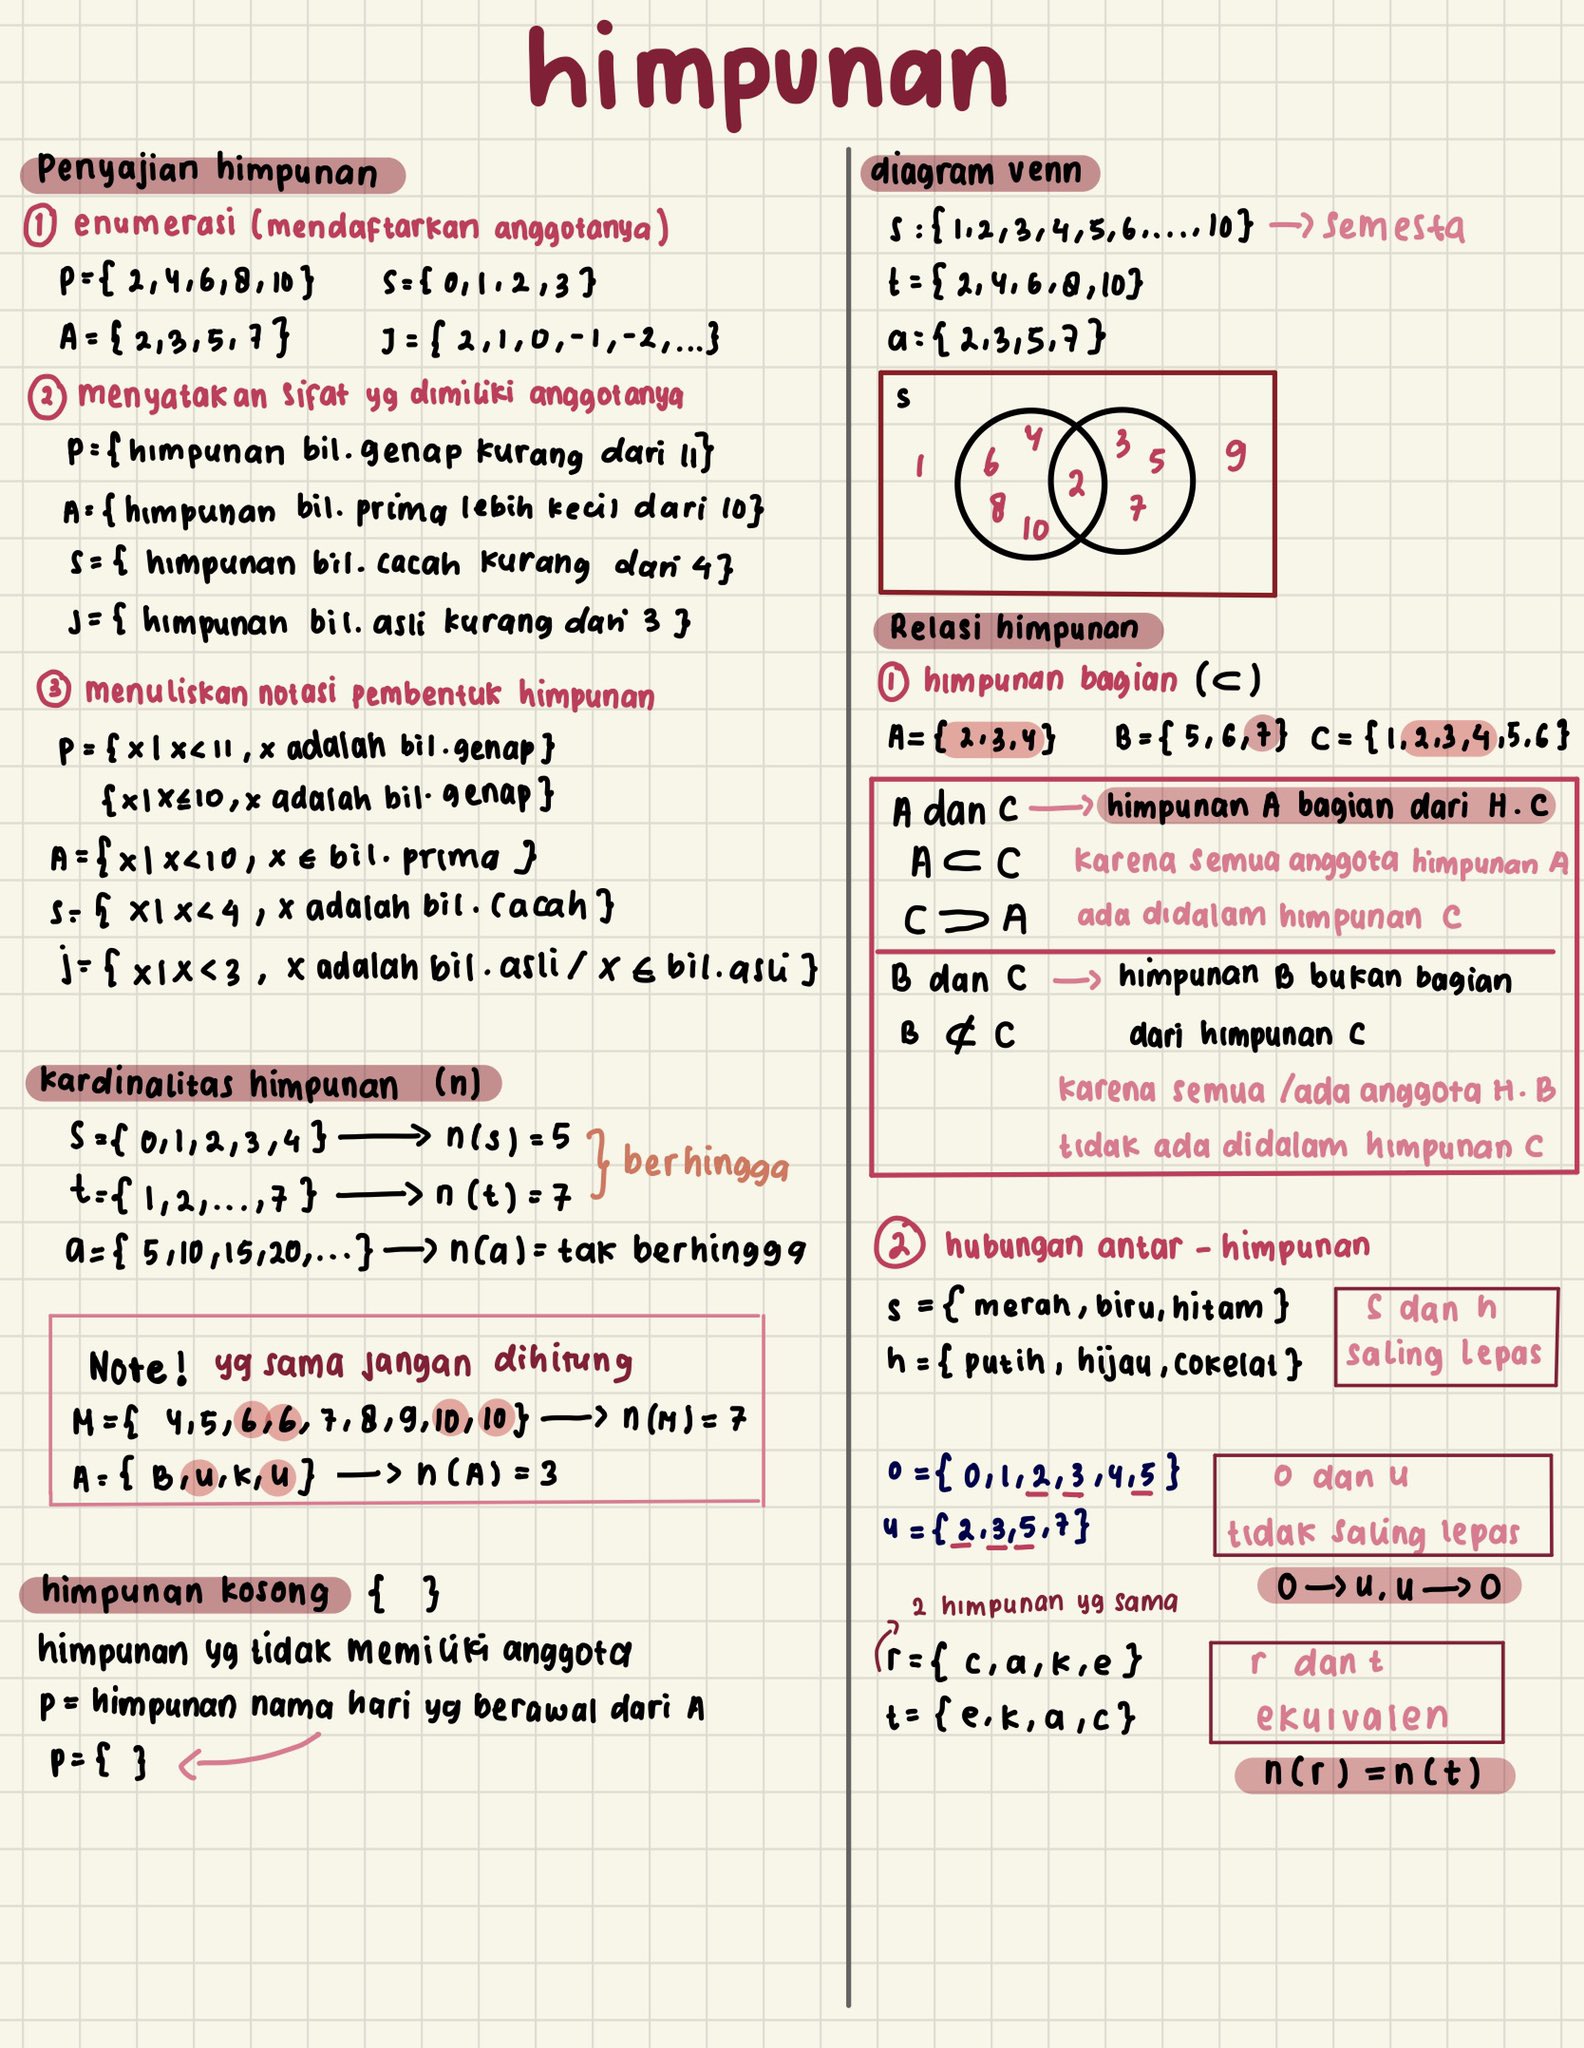 himpunan
Penyajian himpunan
① enumerasi (mendaftarkan anggotanya)
P={ 2,4,6,8,10} S={ 0,1,2,3 }
A={ 2,3,5,7 } J={ 2,1,0,-1,-2,...}
② menyatakan sifat yg dimiliki anggotanya
P={himpunan bil.genap kurang dari 11}
A={himpunan bil. prima lebih kecil dari 10}
S={ himpunan bil.cacah kurang dari 4}
J={ himpunan bil.asli kurang dari 3 }
③ menuliskan notasi pembentuk himpunan
P={x|x<11, x adalah bil.genap}
{x|x≤10, x adalah bil.genap}
A={x|x<10, x ∈ bil. prima }
S={ x|x<4, x adalah bil.cacah}
j={ x|x<3, x adalah bil.asli / x ∈ bil.asli }
kardinalitas himpunan (n)
S={ 0,1,2,3,4} → n(s)=5
t={1,2,...,7 } → n(t)=7
} berhingga
a={ 5,10,15,20,...} → n(a)= tak berhingga
Note! yg sama jangan dihitung
M={ 4,5,6,6,7,8,9,10,10} → n(M)=7
A={ B,u,k,u} → n(A)=3
himpunan kosong { }
himpunan yg tidak memiliki anggota
P= himpunan nama hari yg berawal dari A
P={ } ←
diagram venn
S:{1,2,3,4,5,6,....,10} → Semesta
t={2,4,6,8,10}
a={2,3,5,7}
S
4 3
1 6 2 5 9
8 7
10
Relasi himpunan
① himpunan bagian (⊂)
A={2,3,4} B={5,6,7} C={1,2,3,4,5,6}
A dan C → himpunan A bagian dari H.C
A⊂C karena semua anggota himpunan A
C⊃A ada didalam himpunan C
B dan C → himpunan B bukan bagian
B ⊄ C dari himpunan C
karena semua /ada anggota H.B
tidak ada didalam himpunan C
② hubungan antar - himpunan
s={ merah, biru, hitam }
h={ putih, hijau, cokelat}
S dan h
saling lepas
O={ 0,1,2,3,4,5 }
u={2,3,5,7}
O dan u
tidak saling lepas
O→u, u→O
2 himpunan yg sama
r={ c,a,k,e }
t={e,k,a,c}
r dan t
ekuivalen
n(r)=n(t)